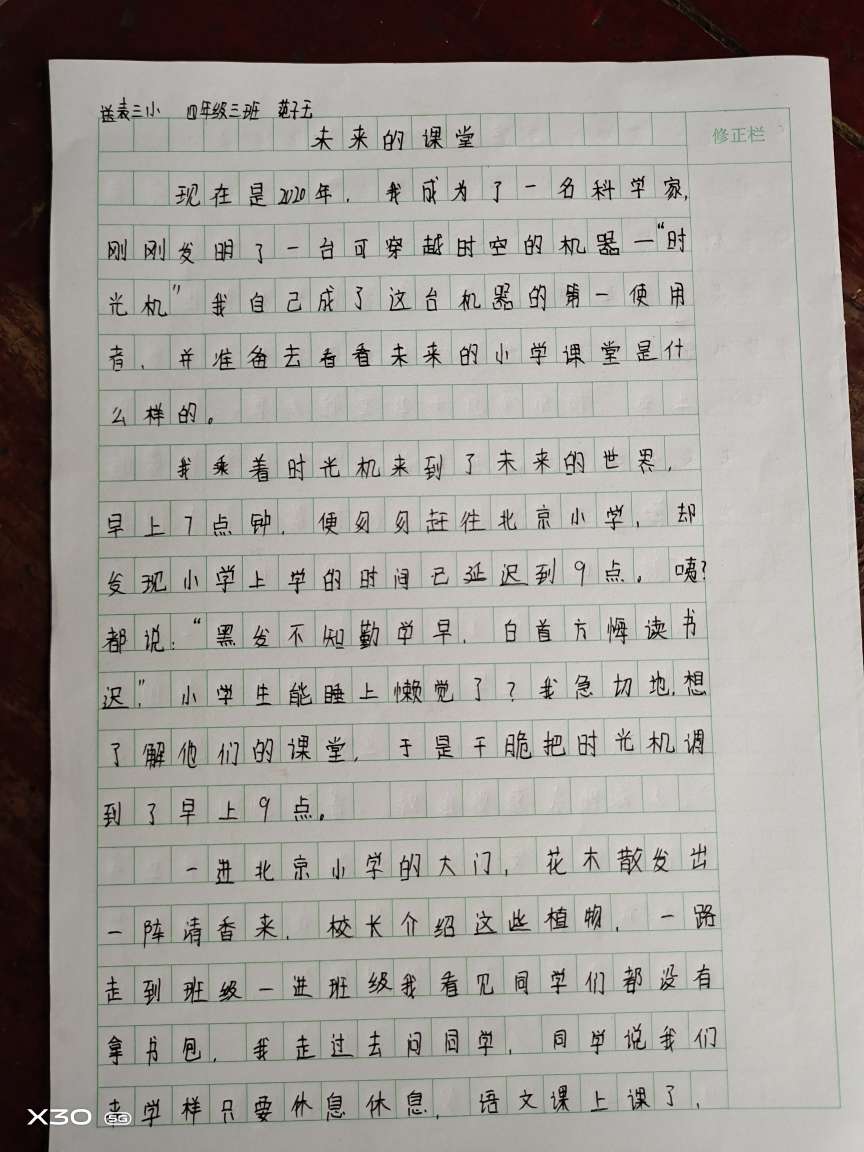 送表三小 四年级三班 范子玉
未来的课堂
修正栏
现在是2020年，我成为了一名科学家，
刚刚发明了一台可穿越时空的机器—“时
光机”我自己成了这台机器的第一使用
者，并准备去看看未来的小学课堂是什
么样的。
我乘着时光机来到了未来的世界，
早上7点钟，便匆匆赶往北京小学，却
发现小学上学的时间已延迟到9点。咦？
都说：“黑发不知勤学早，白首方悔读书
迟”，小学生能睡上懒觉了？我急切地，想
了解他们的课堂，于是干脆把时光机调
到了早上9点。
一进北京小学的大门，花木散发出
一阵清香来，校长介绍这些植物，一路
走到班级一进班级我看见同学们都没有
拿书包，我走过去问同学，同学说我们
来学样只要休息休息，语文课上课了，
X30 5G